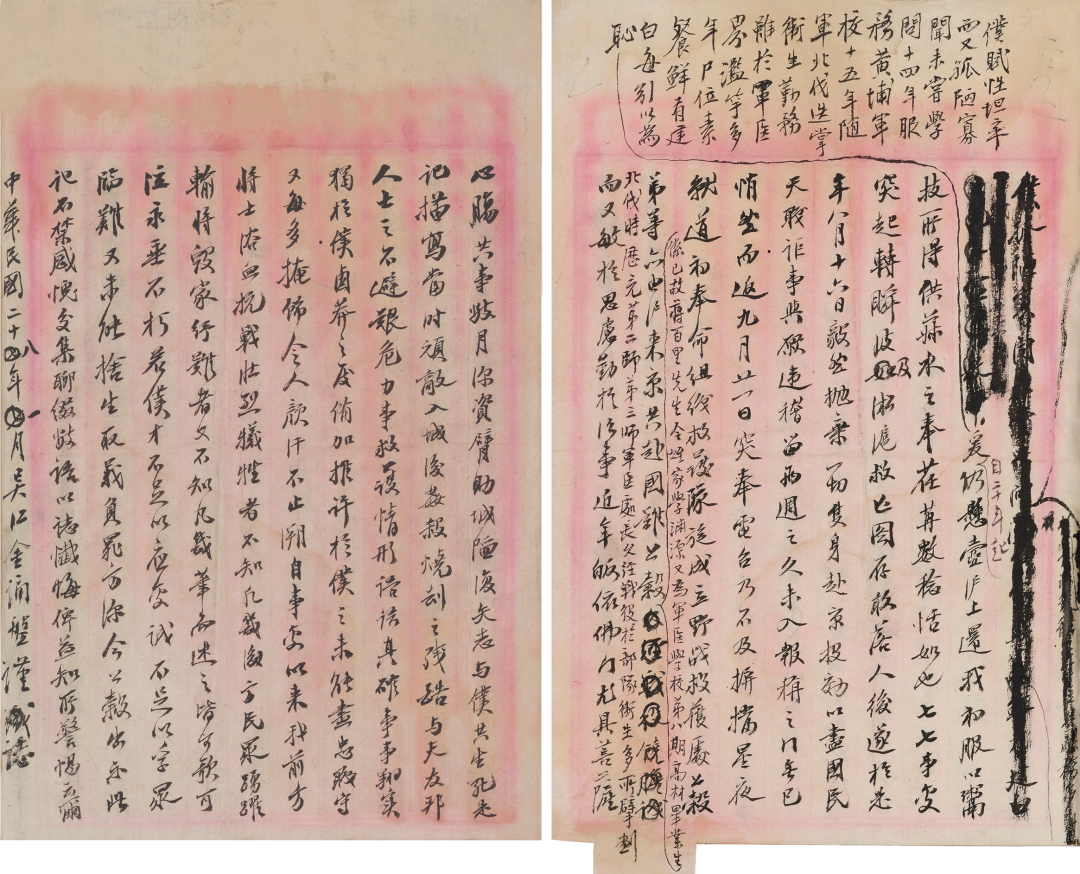 僕賦性坦率
而又孤陋寡
聞未嘗學
問十四年服
務黃埔軍
校十五年随
軍北伐迭掌
衛生勤務
雖於軍医
界濫竽多
年尸位素
餐鮮有建
白每引以為
恥
自二十年起
爰仍懸壺滬上還我初服以鬻
技所得供菽水之奉荏苒數稔恬如也七七事变
突起轉瞬波及淞滬救亡圖存敢落人後遂於是
年八月十六日毅然抛棄一切隻身赴京投効以盡國民
天職詎事與願違稽留兩週之久未入報稱之门無已
悄然而返九月廿一日突奉電召乃不及摒擋星夜
就道初奉命組織救護隊旋成立野戰救護處公穀
係已故蔣百里先生令姪家學淵源又為軍医學校第八期高材畢業生
弟等亦由滬来京共赴國難公穀饒膽識
北伐時歷充第二師第三師軍医處長久經戰役於部隊衛生多所擘劃
而又敏於思慮勤於治事近年皈依佛门尤具菩薩
心腸共事數月深資臂助城陷復矢志与僕共生死是
記描寫當时頑敵入城後姦殺燒刦之残酷与夫友邦
人士之不避艱危力事救護情形語語真確事事翔實
獨於僕鹵莽之处侑加推许於僕之未能盡忠職守
又每多掩飾令人颜汗不止溯自事变以来我前方
将士浴血抗戰壯烈犧牲者不知凡幾後方民眾踴躍
輸將毀家紓難者又不知凡幾筆而述之皆可歌可
泣永垂不朽若僕才不足以應变誠不足以孚眾
臨難又未能捨生取義負罪方深今公穀出示此
記不禁感愧交集聊綴數語以誌懺悔俾益知所警惕云爾
中華民國二十八年一月吳江金誦盤謹誌